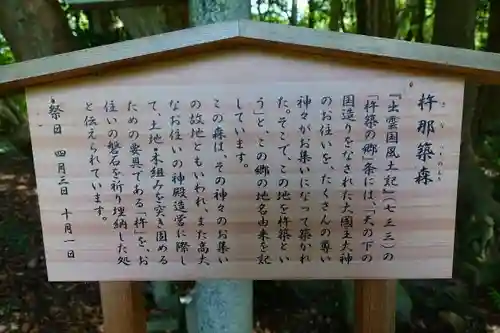 杵那築森
『出雲国風土記』（七三三）の
「杵築の郷」条には、「天の下の
国造りをなされた大国主大神
のお住いを、たくさんの尊い
神々がお集いになって築かれ
た。そこで、この地を杵築とい
う」と、この郷の地名由来を記
しています。
この森は、その神々のお集い
の故地ともいわれ、また高大
なお住いの神殿造営に際し
て、土地・木組みを突き固める
ための要具である「杵」を、お
住いの盤石を祈り埋納した処
と伝えられています。
祭日 四月三日 十月一日